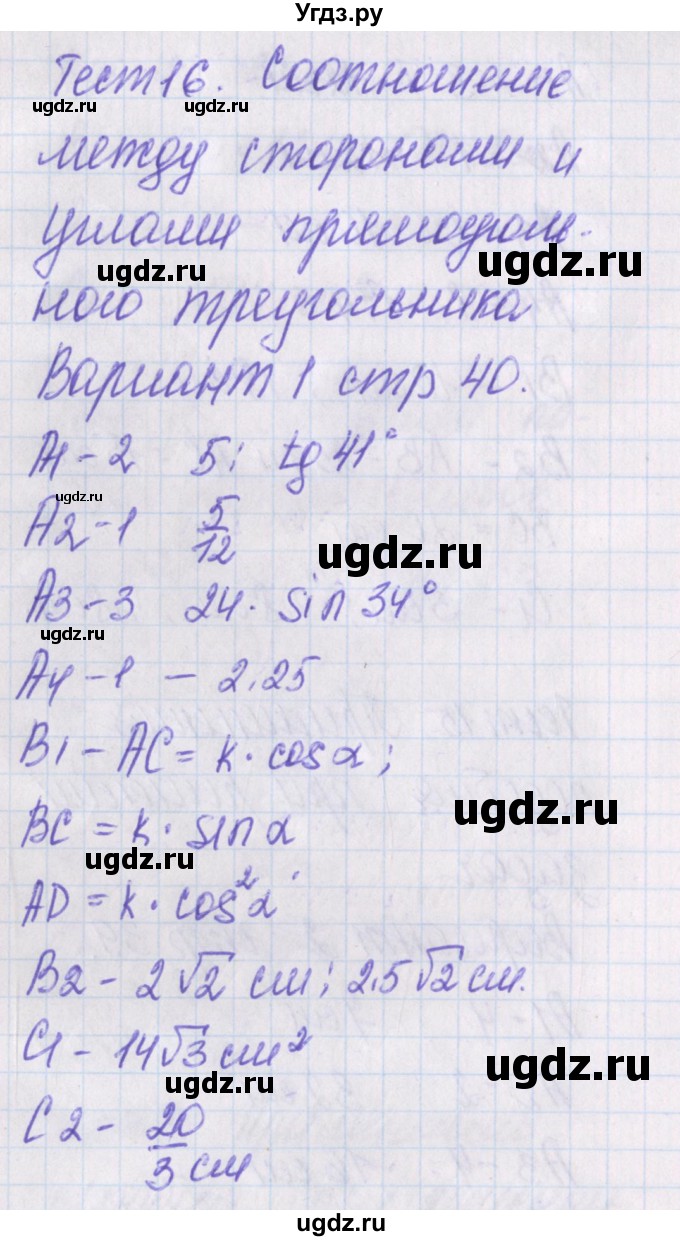 Угдз.ру
Тест 16. Соотношение
ugdz.ru ugdz.ru
между сторонами и
углами прямоуголь-
ugdz.ru ugdz.ru
ного треугольника
Вариант 1 стр 40.
А1 - 2 5 : tg 41°
ugdz.ru
А2 - 1 5/12
ugdz.ru
А3 - 3 24 · sin 34°
ugdz.ru
А4 - 1 - 2,25
В1 - AC = k · cos α ;
ugdz.ru
BC = k · sin α
ugdz.ru
AD = k · cos² α
В2 - 2√2 см ; 2,5√2 см.
С1 - 14√3 см²
ugdz.ru
ugdz.ru
С2 - 20/3 см
ugdz.ru